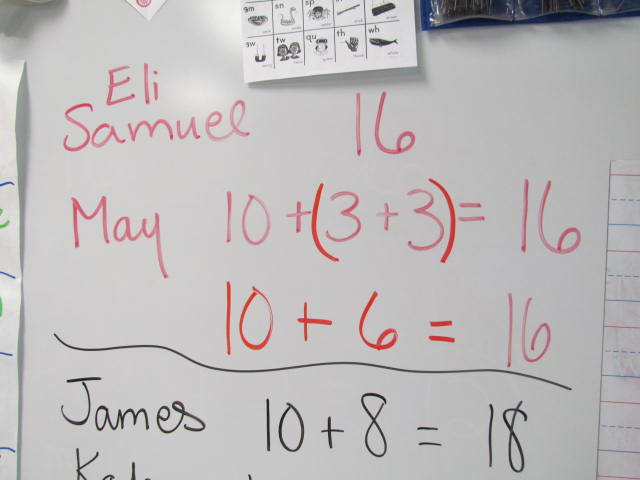 gm sn sp
sw tw qu th wh
Eli
Samuel 16
May 10 + (3 + 3) = 16
10 + 6 = 16
James 10 + 8 = 18